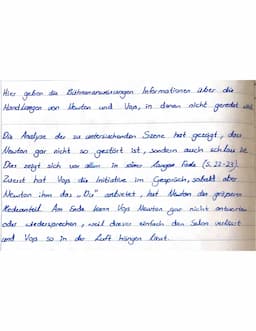 Hier geben die Bühnenanweisungen Informationen über die
Handlungen von Newton und Voß, in denen nicht geredet wird.
Die Analyse der zu untersuchenden Szene hat gezeigt, dass
Newton gar nicht so gestört ist, sondern auch schlau ist.
Das zeigt sich vor allem in seiner langen Rede (S. 22-23).
Zuerst hat Voß die Initiative im Gespräch, sobald aber
Newton ihm das „Du" anbietet, hat Newton den größeren
Redeanteil. Am Ende kann Voß Newton gar nicht antworten
oder wiedersprechen, weil dieser einfach den Salon verlässt
und Voß so in der Luft hängen lässt.